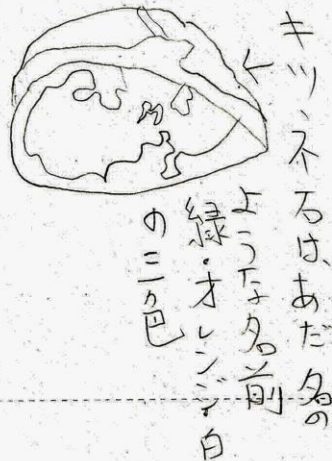 キツネ石は、あだ名の
ような名前
緑・オレンジ・白
の三色